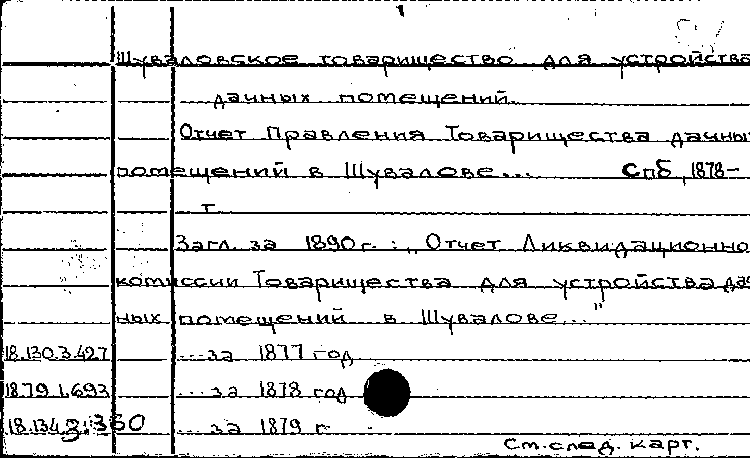 Шуваловское товарищество для устройства
дачных помещений.
Отчет Правления Товарищества дачных
помещений в Шувалове... Спб, 1878-
т
Загл. за 1890г.: „Отчет Ликвидационно
комиссии Товарищества для устройства дач
ных помещений в Шувалове..."
18.130.3.427 ...за 1877 год
18.79.1.693 ...за 1878 год
18.134.3.360 ...за 1879 г.
См. след. карт.